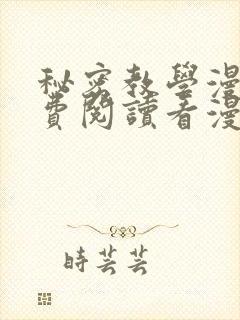 秘密教學漫
費閱讀看漫
時芸芸